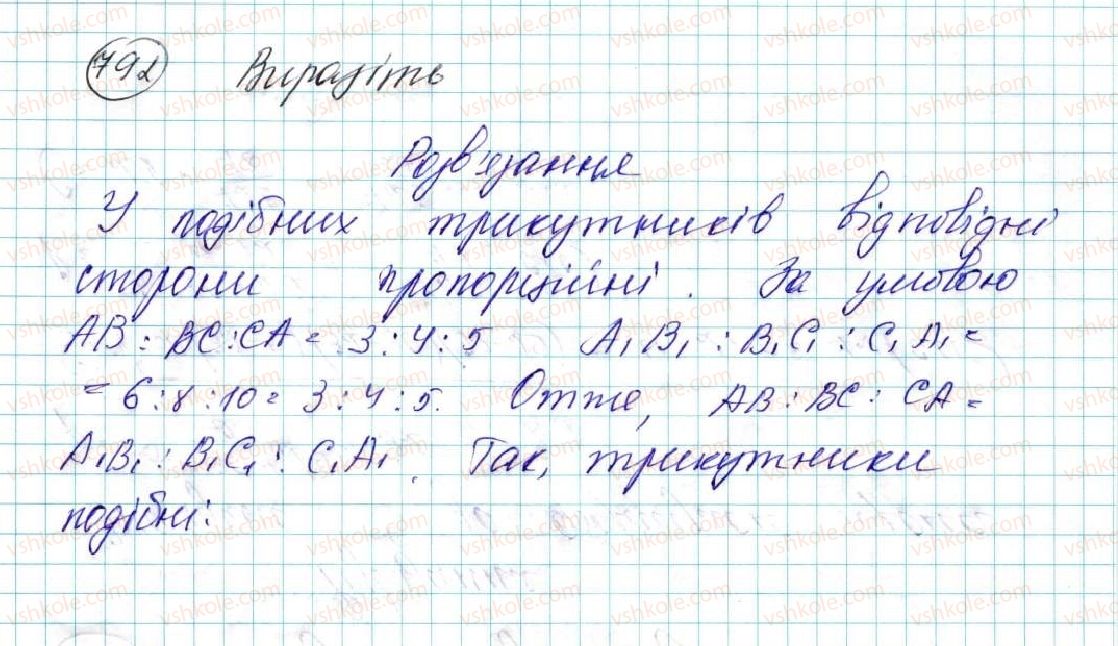 792 Виразіть
Розв'язання
У подібних трикутників відповідні
сторони пропорційні. За умовою
AB : BC : CA = 3 : 4 : 5 A₁B₁ : B₁C₁ : C₁A₁ =
= 6 : 8 : 10 = 3 : 4 : 5. Отже, AB : BC : CA =
A₁B₁ : B₁C₁ : C₁A₁. Так, трикутники
подібні.